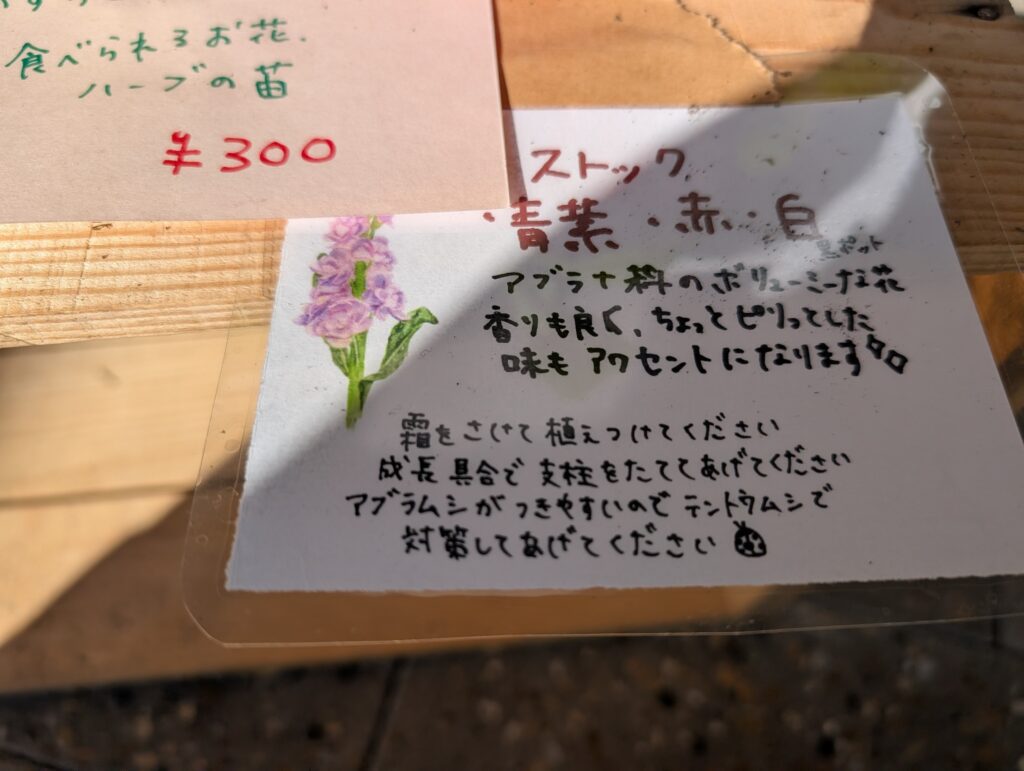 食べられるお花、
ハーブの苗
¥300
ストック
・青葉・赤・白
黒ポット
アブラナ科のボリューミーな花
香りも良く、ちょっとピリっとした
味もアクセントになります
霜をさけて植えつけてください
成長具合で支柱をたててあげてください
アブラムシがつきやすいのでテントウムシで
対策してあげてください